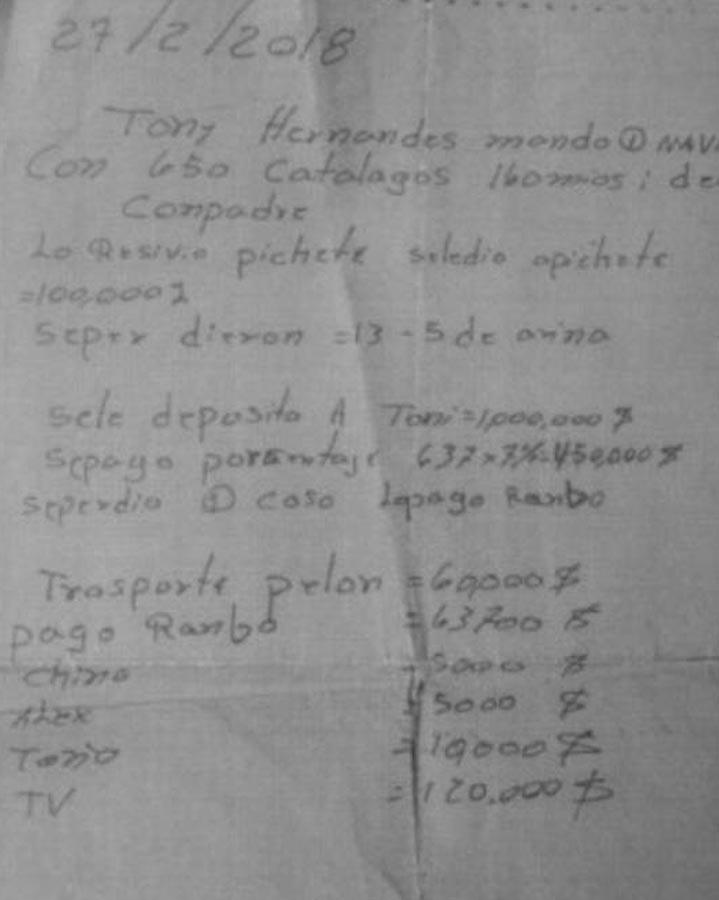 27/2/2018
Tony Hernandes mando ① NAV
Con 650 Catalagos 160mios; de
Conpadre
Lo Resivio pichete seledio apichete
=100,000$
Seper dieron =13-5 de arina
Sele deposito A Toni=1,000,000$
Sepago porsentaje 637x7%=450,000$
seperdio ① coso Lopago Ranbo
Trasporte pelon =60,000$
pago Ranbo =63700$
chino 5000 $
ALEX 5000 $
Tonio =10,000$
TV =120,000$